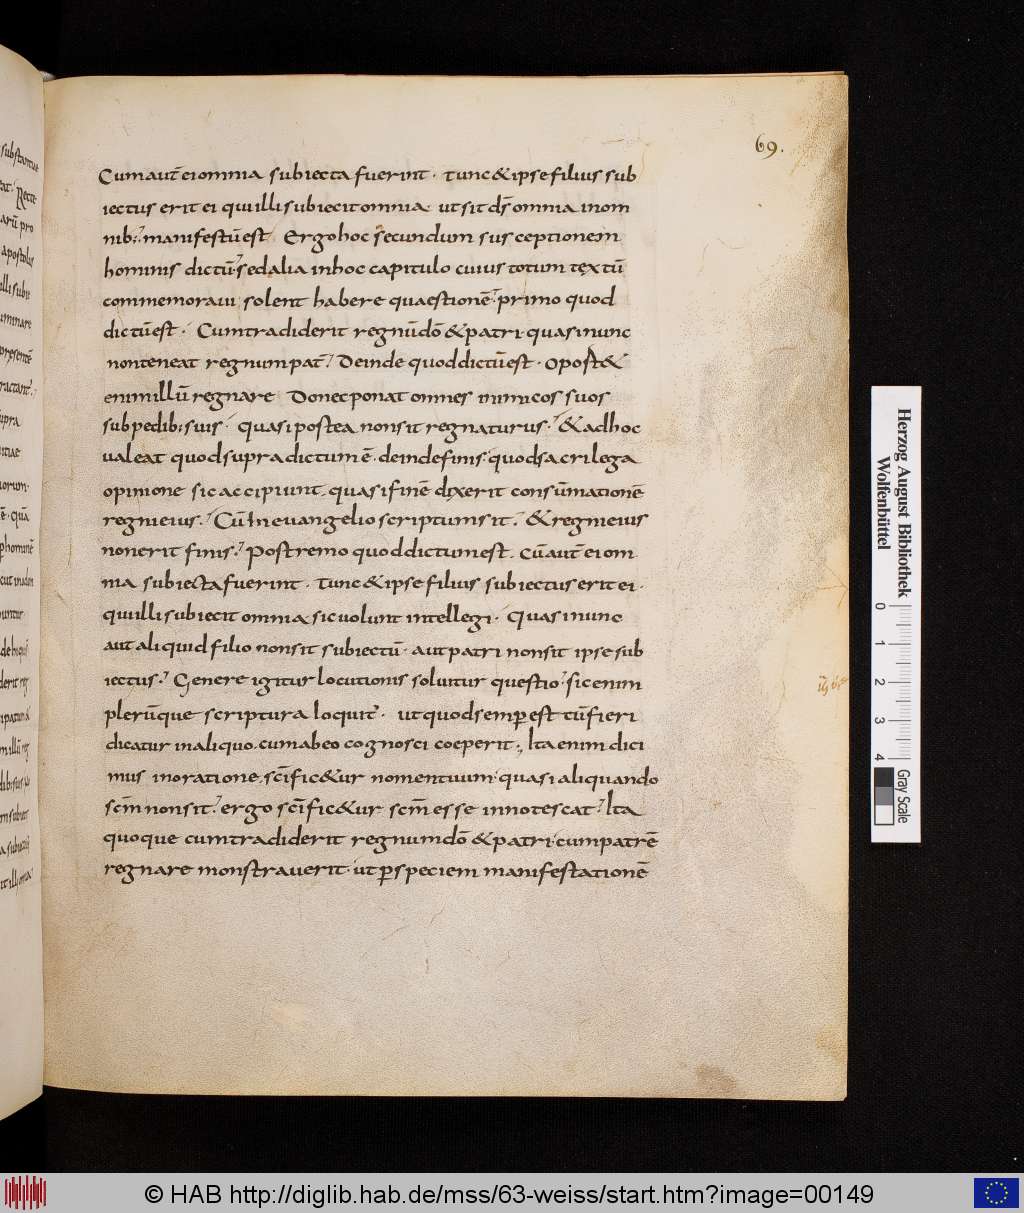 69.
Cum aut̄ ei omnia subiecta fuerint · tunc & ipse filius sub
iectus erit ei qui illi subiecit omnia · ut sit d̄s omnia in om
nib; manifestū est Ergo hoc secundum susceptionem
hominis dictū · sed alia in hoc capitulo cuius totum tęxtū
commemoraui solent habere quaestionē · primo quod
dictū est · Cum tradiderit regnū dō & patri · quasi nunc
non teneat regnum pat̄ · Deinde quod dictū est · oport&
enim illū regnare Donec ponat omnes inimicos suos
sub pedib; suis · quasi postea non sit regnaturus · & ad hoc
ualeat quod supra dictum ē · deinde finis · quod sacrilega
opinione sic accipiunt · quasi finē dixerit consūmationē
regni eius · Cū in euangelio scriptum sit · & regni eius
non erit finis · Postremo quod dictum est · cū aut̄ ei om
nia subiecta fuerint · tunc & ipse filius subiectus erit ei ·
qui illi subiecit omnia sic uolunt intellegi · Quasi nunc
aut aliquid filio non sit subiectū · aut patri non sit ipse sub
iectus · Genere igitur locutionis soluitur questio · sic enim
plerūque scriptura loquit̄ · ut quod semꝑ est tū fieri
dicatur in aliquo · cum ab eo cognosci coeperit · Ita enim dici
mus in oratione · sc̄ific&ur nomen tuum · quasi aliquando
sc̄m non sit · ergo sc̄ific&ur sc̄m esse innotescat · Ita
quoque cum tradiderit regnum dō & patri · cum patrē
regnare monstrauerit · ut ꝑ speciem manifestationē
Herzog August Bibliothek
Wolfenbüttel
0 1 2 3 4
Gray Scale
© HAB http://diglib.hab.de/mss/63-weiss/start.htm?image=00149